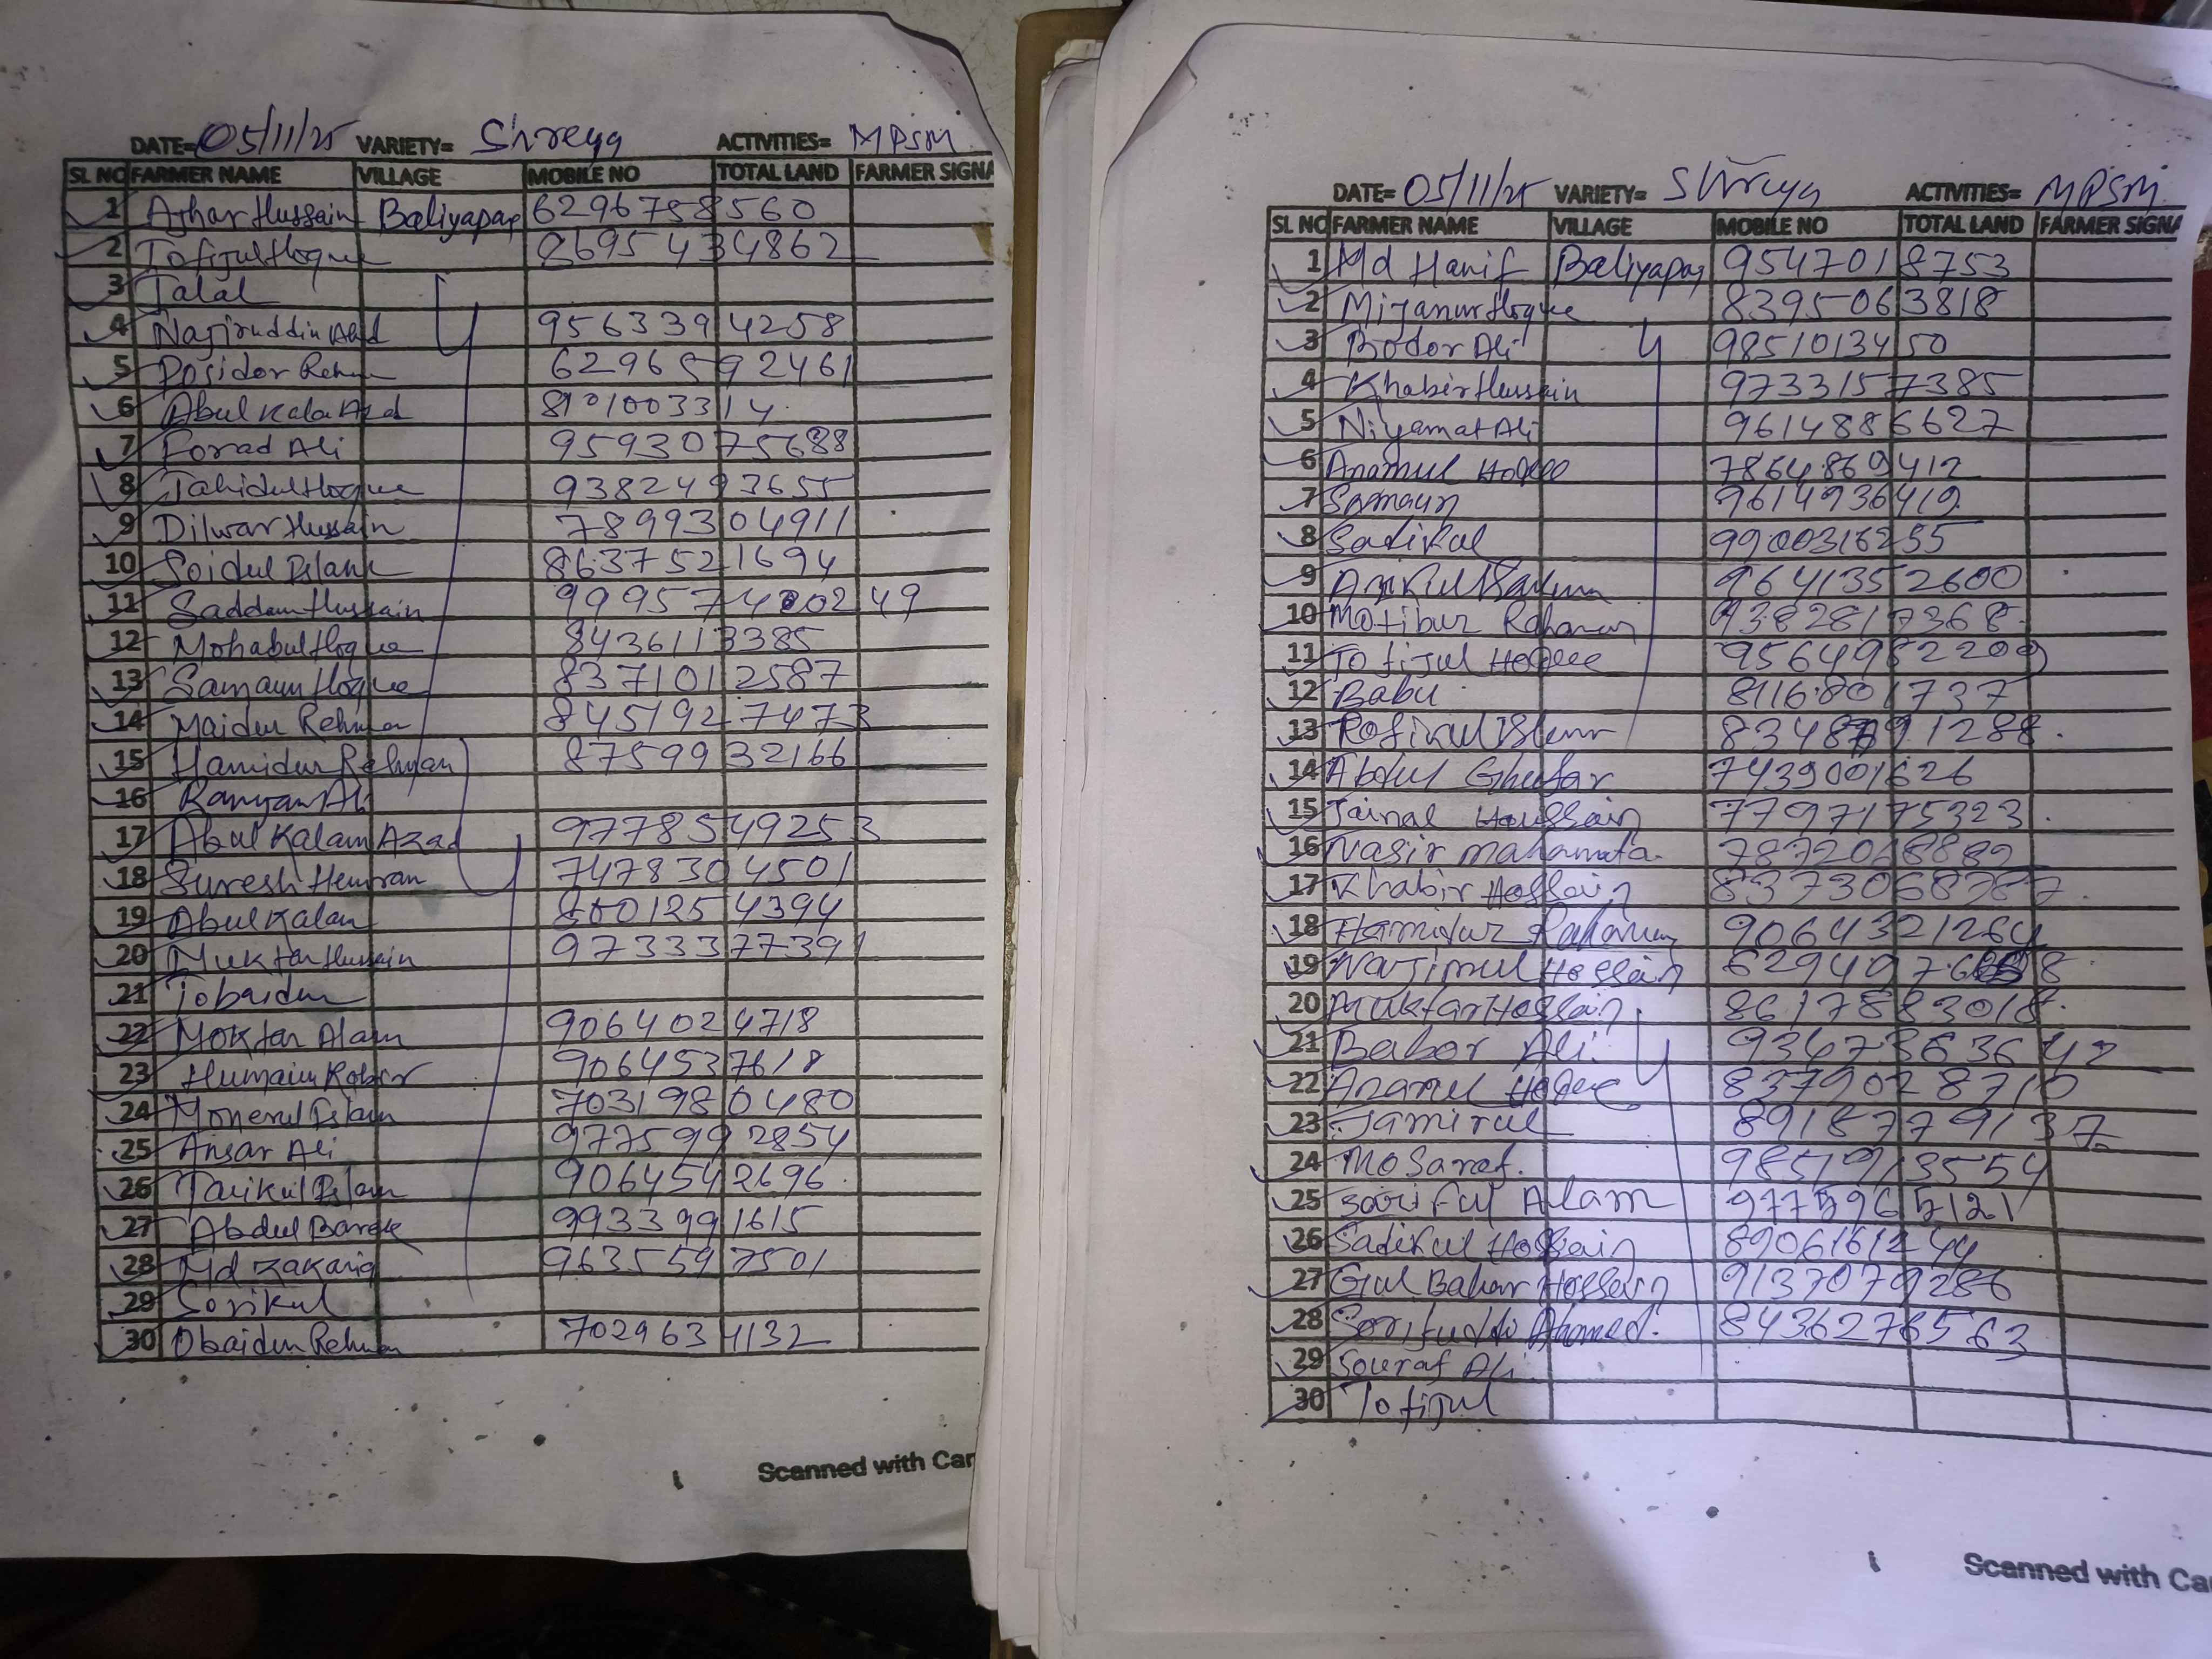 DATE= 05/11/25 VARIETY= Shreya ACTIVITIES= MPSM
SL NO FARMER NAME VILLAGE MOBILE NO TOTAL LAND FARMER SIGNA
1 Azhar Hussain Baliyapap 6296758560
2 Tofijul Hoque 8695434862
3 Jalal
4 Najiruddin 9563394258
5 Posidor Rehm 6296592461
6 Abul Kala Azad 8101003314
7 Forad Ali 9593075688
8 Tahidul Hoque 9382493655
9 Dilwar Hussain 7899304911
10 Soidul Islam 8637521694
11 Saddam Hussain
12 Mohabul Hoque 8436113385
13 Samaun Hoque 8371012587
14 Maidur Rehman 8451927473
15 Hamidur Rehman 8759932166
16 Ramyan Ali
17 Abul Kalam Azad 9778549253
18 Suresh Hemram 7478304501
19 Abul Kalam 8001254394
20 Muktar Hussain 9733377391
21 Tobaidur
22 Moktar Alam 9064024718
23 Humaun Kobir 9064537618
24 Monerul Islam 7031980480
25 Ansar Ali 9775992854
26 Tarikul Islam 9064542696
27 Abdul Barek 9933991615
28 Md Kakaria 9635597501
29 Sorikul
30 Obaidur Rehman 7029634132
Scanned with Car
DATE= 05/11/25 VARIETY= Shreya ACTIVITIES= MPSM
SL NO FARMER NAME VILLAGE MOBILE NO TOTAL LAND FARMER SIGNA
1 Md Hanif Baliyapap 9547018753
2 Mijanur Hoque 8395063818
3 Bodor Ali 9851013450
4 Khabir Hussain 9733157385
5 Niyamat Ali 9614886627
6 Anamul Hoque 7864869412
7 Samaun 9614936419
8 Sadikul 9900316255
9 9641352600
10 Motibur Rahaman 9382817368
11 Tofijul Hoque 9564982209
12 Babu 8116801737
13 Rofikul Islam
14 Abdul Ghafar 7439001626
15 Jainal Houssain 7797175323
16 Nasir mahamata 7872068889
17 Khabir Hossain 8373068787
18 Hamidur Rahaman 9064321264
19 Najimul Hossain
20 Muktar Hossain 8617883018
21 Babor Ali
22 Anamul Hoque 8379028710
23 Jamirul
24 Mosaraf 9851913554
25 Sariful Alam 9775965121
26 Sadikul Hossain 8906161244
27 Gul Bahar Hossain 9137079286
28 Ahmed 8436276563
29 Souraf Ali
30 Tofijul
Scanned with Ca